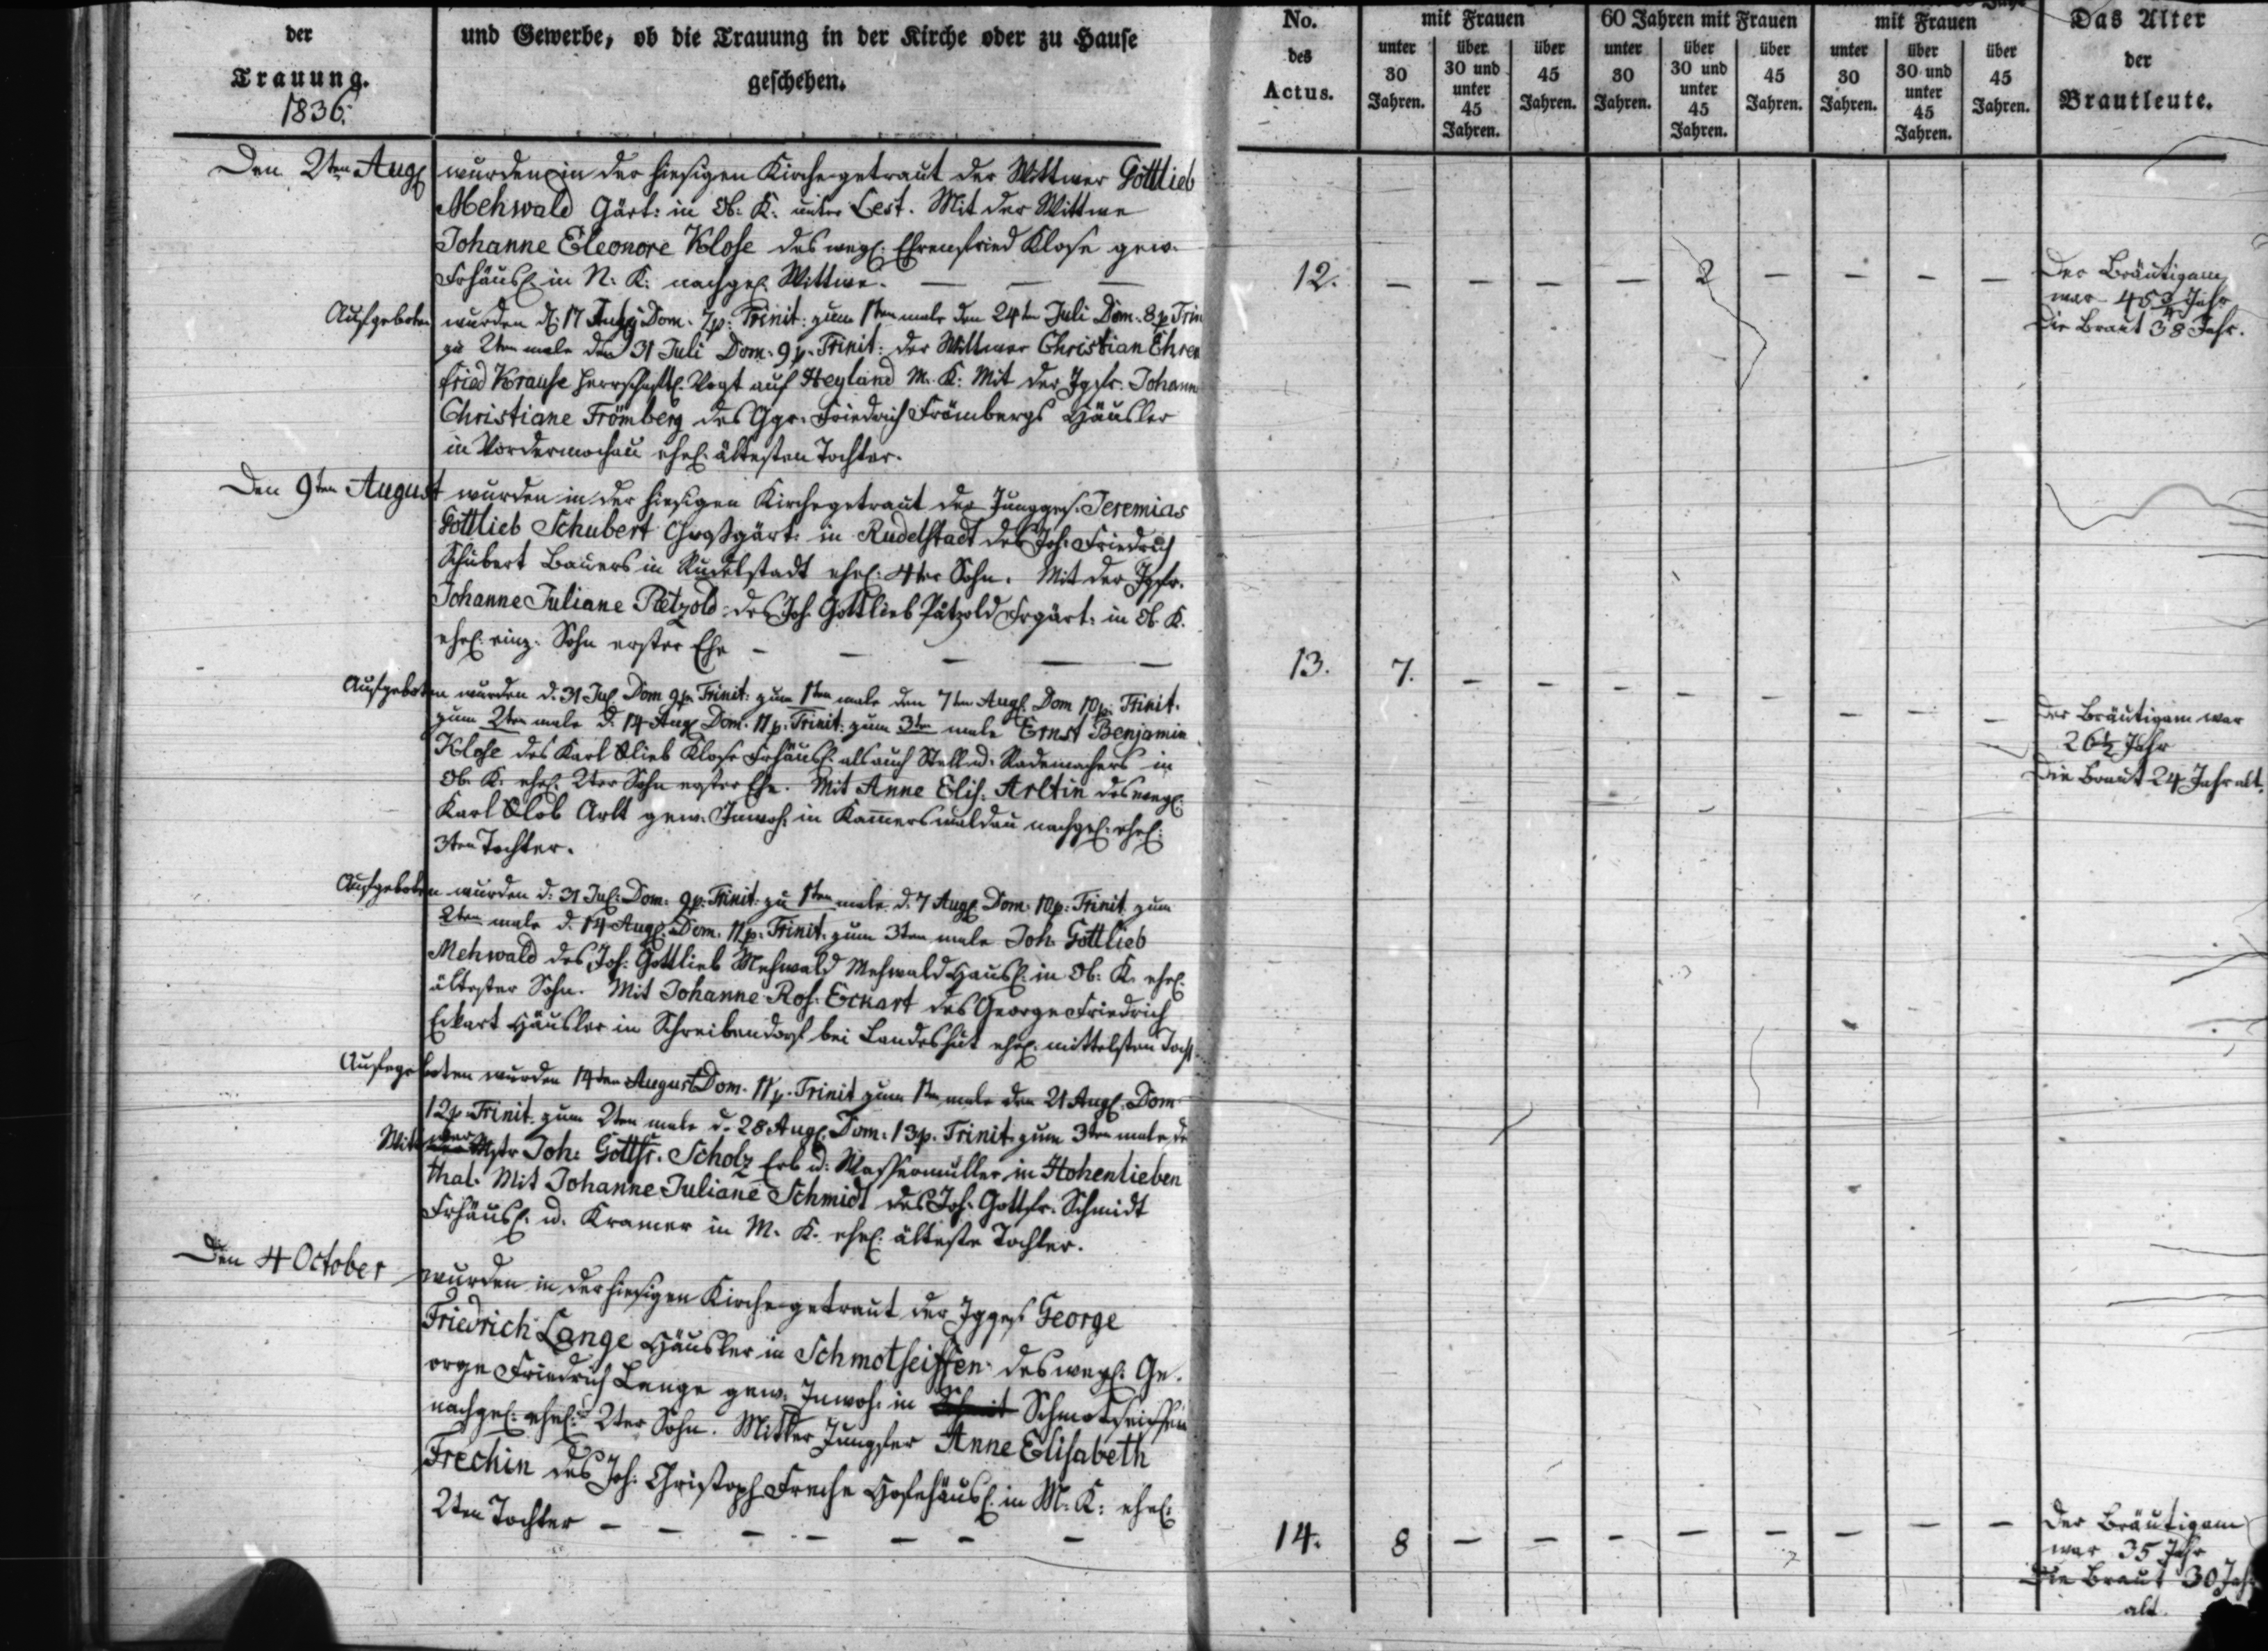 der
Trauung.
1836.
und Gewerbe, ob die Trauung in der Kirche oder zu Hause
geschehen.
No.
des
Actus.
mit Frauen
unter
30
Jahren.
über
30 und
unter
45
Jahren.
über
45
Jahren.
60 Jahren mit Frauen
unter
30
Jahren.
über
30 und
unter
45
Jahren.
über
45
Jahren.
mit Frauen
unter
30
Jahren.
über
30 und
unter
45
Jahren.
über
45
Jahren.
Das Alter
der
Brautleute.
Den 2ten Aug wurden in der hiesigen Kirche getraut der Wittwer Gottlieb
Mehwald Gärt: in Ob: K: unter Lest. Mit der Wittwe
Johanne Eleonore Klose des wegl: Ehrenfried Klose gew.
Frhäusl: in N: K: nachgel: Wittwe. — — —
12. — — — — 2 — — — —
Der Bräutigam
war 45 3/4 Jahr
Die Braut 38 Jahr.
Aufgeboten wurden d: 17 July Dom. 7 p: Trinit: zum 1ten male den 24ten Juli Dom. 8 p Trin
zu 2ten male den 31 Juli Dom. 9 p. Trinit: der Wittwer Christian Ehren
fried Krause herrschaftl. Vogt auf Heyland M. K: Mit der Jgfr. Johann
Christiane Frömberg des Ggr. Friedrich Frömbergs Häusler
in Vordermochau ehel. ältesten Tochter.
Den 9ten August wurden in der hiesigen Kirche getraut der Jungges. Jeremias
Gottlieb Schubert Großgärt: in Rudelstadt des Joh: Friedrich
Schubert Bauers in Rudelstadt ehel: 4ter Sohn. Mit der Jgfr.
Johanne Juliane Pätzold des Joh. Gottlieb Pätzold Frgärt: in Ob. K.
ehel: einz. Sohn erster Ehe — — — — —
13. 7. — — — — — — — —
Der Bräutigam war
26 1/2 Jahr
Die Braut 24 Jahr alt.
Aufgeboten wurden d. 31 Jul Dom 9 p. Trinit: zum 1ten male den 7ten Aug. Dom 10 p. Trinit.
zum 2ten male d. 14 Aug Dom. 11 p. Trinit: zum 3ten male Ernst Benjamin
Klose des Karl Glieb Klose Frhäusl: als auch Stell u: Rademachers in
Ob. K: ehel: 2ter Sohn erster Ehe. Mit Anne Elis: Arltin des wegl:
Karl Glob Arlt gew. Inwoh: in Kammerswaldau nachgel: ehel:
3ten Tochter.
Aufgeboten wurden d. 31 Jul: Dom. 9 p. Trinit. zu 1ten male d. 7 Aug Dom. 10 p: Trinit zum
2ten male d. 14 Aug. Dom. 11 p. Trinit. zum 3ten male Joh. Gottlieb
Mehwald des Joh: Gottlieb Mehwald Mehwald Hausl: in Ob: K. ehel:
ältester Sohn. Mit Johanne Ros: Eckart des George Friedrich
Eckart Häusler in Schreibendorf bei Landeshut ehel: mittelsten Toch
Aufgeboten wurden 14ten August Dom. 11 p. Trinit zum 1ten male den 21 Aug. Dom
12 p. Trinit. zum 2ten male d. 28 Aug. Dom. 13 p. Trinit. zum 3ten male, de
Wittwer Mstr Joh: Gottfr. Scholz Erb u: Wassermüller in Hohenlieben
thal. Mit Johanne Juliane Schmidt des Joh. Gottfr. Schmidt
Frhäusl. u. Kramer in M. K. ehel: älteste Tochter.
Den 4 October wurden in der hiesigen Kirche getraut der Jgges George
Friedrich Lange Häusler in Schmotseiffen des wegl: Ge.
orge Friedrich Lange gew. Inwoh: in Schmotseiffen
nachgel: ehel: 2ter Sohn. Mit der Jungfer Anne Elisabeth
Frechin des Joh: Christoph Freche Hofehäusl: in M. K: ehel:
2ten Tochter — — — — — — —
14. 8 — — — — — — — —
Der Bräutigam
war 35 Jahr
Die Braut 30 Jah
alt.